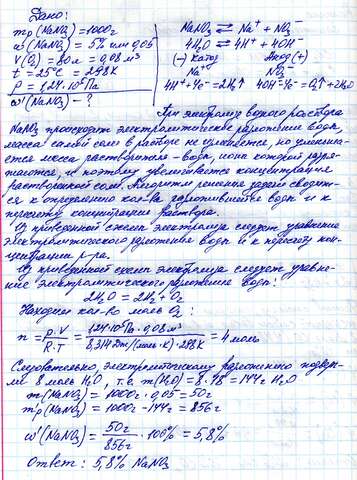 Дано:
mр(NaNO3)=1000г
ω(NaNO3) = 5% или 0,05
V(O2) = 80л = 0,08 м³
t = 25°C = 298K
P = 1,24·10⁵Па
ω'(NaNO3) - ?
NaNO3 ⇄ Na⁺ + NO3⁻
4H2O ⇄ 4H⁺ + 4OH⁻
(-) Катод Анод (+)
Na⁺ NO3⁻
4H⁺+4e⁻=2H2↑ 4OH⁻-4e⁻=O2↑+2H2O
При электролизе водного раствора
NaNO3 происходит электролитическое разложение воды,
масса самой соли в растворе не изменяется, но уменьша-
ется масса растворителя - воды, ионы которой разря-
жаются, и поэтому увеличивается концентрация
растворённой соли. Алгоритм решения задачи сводит-
ся к определению кол-ва разложившейся воды и к
пересчёту концентрации раствора.
Из приведённой схемы электролиза следует уравнение
электролитического разложения воды и к пересчёту кон-
центрации р-ра.
Из приведённой схемы электролиза следует уравне-
ние электролитического разложения воды:
2H2O = 2H2 + O2
Находим кол-во моль O2:
n = P·V / R·T = 1,24·10⁵Па · 0,08м³ / 8,314Дж/(моль·К)·298К = 4 моль
Следовательно, электролитическому разложению подверг-
ли 8 моль H2O, т.е. m(H2O) = 8·18 = 144г H2O
m(NaNO3) = 1000г·0,05 = 50г
mр(NaNO3) = 1000г-144г = 856г
ω'(NaNO3) = 50г / 856г · 100% = 5,8%
Ответ: 5,8% NaNO3